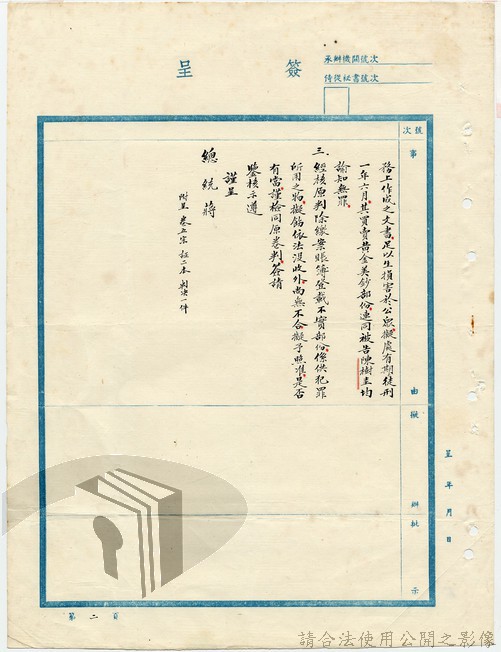 簽呈
承辦機關號次
侍從祕書號次
號次
事由
擬辦
批示
呈 年 月 日
務上作成之文書足以生損害於公眾擬處有期徒刑
一年六月其買賣黃金美鈔部份連同被告陳樹圭均
諭知無罪
三、經核原判除緣案賬簿登載不實部份係供犯罪
所用之物擬飭依法沒收外尚無不合擬予照准是否
有當謹檢同原卷判簽請
鑒核示遵
謹呈
總統蔣
附呈卷五宗証二本判決一件
第二頁
請合法使用公開之影像